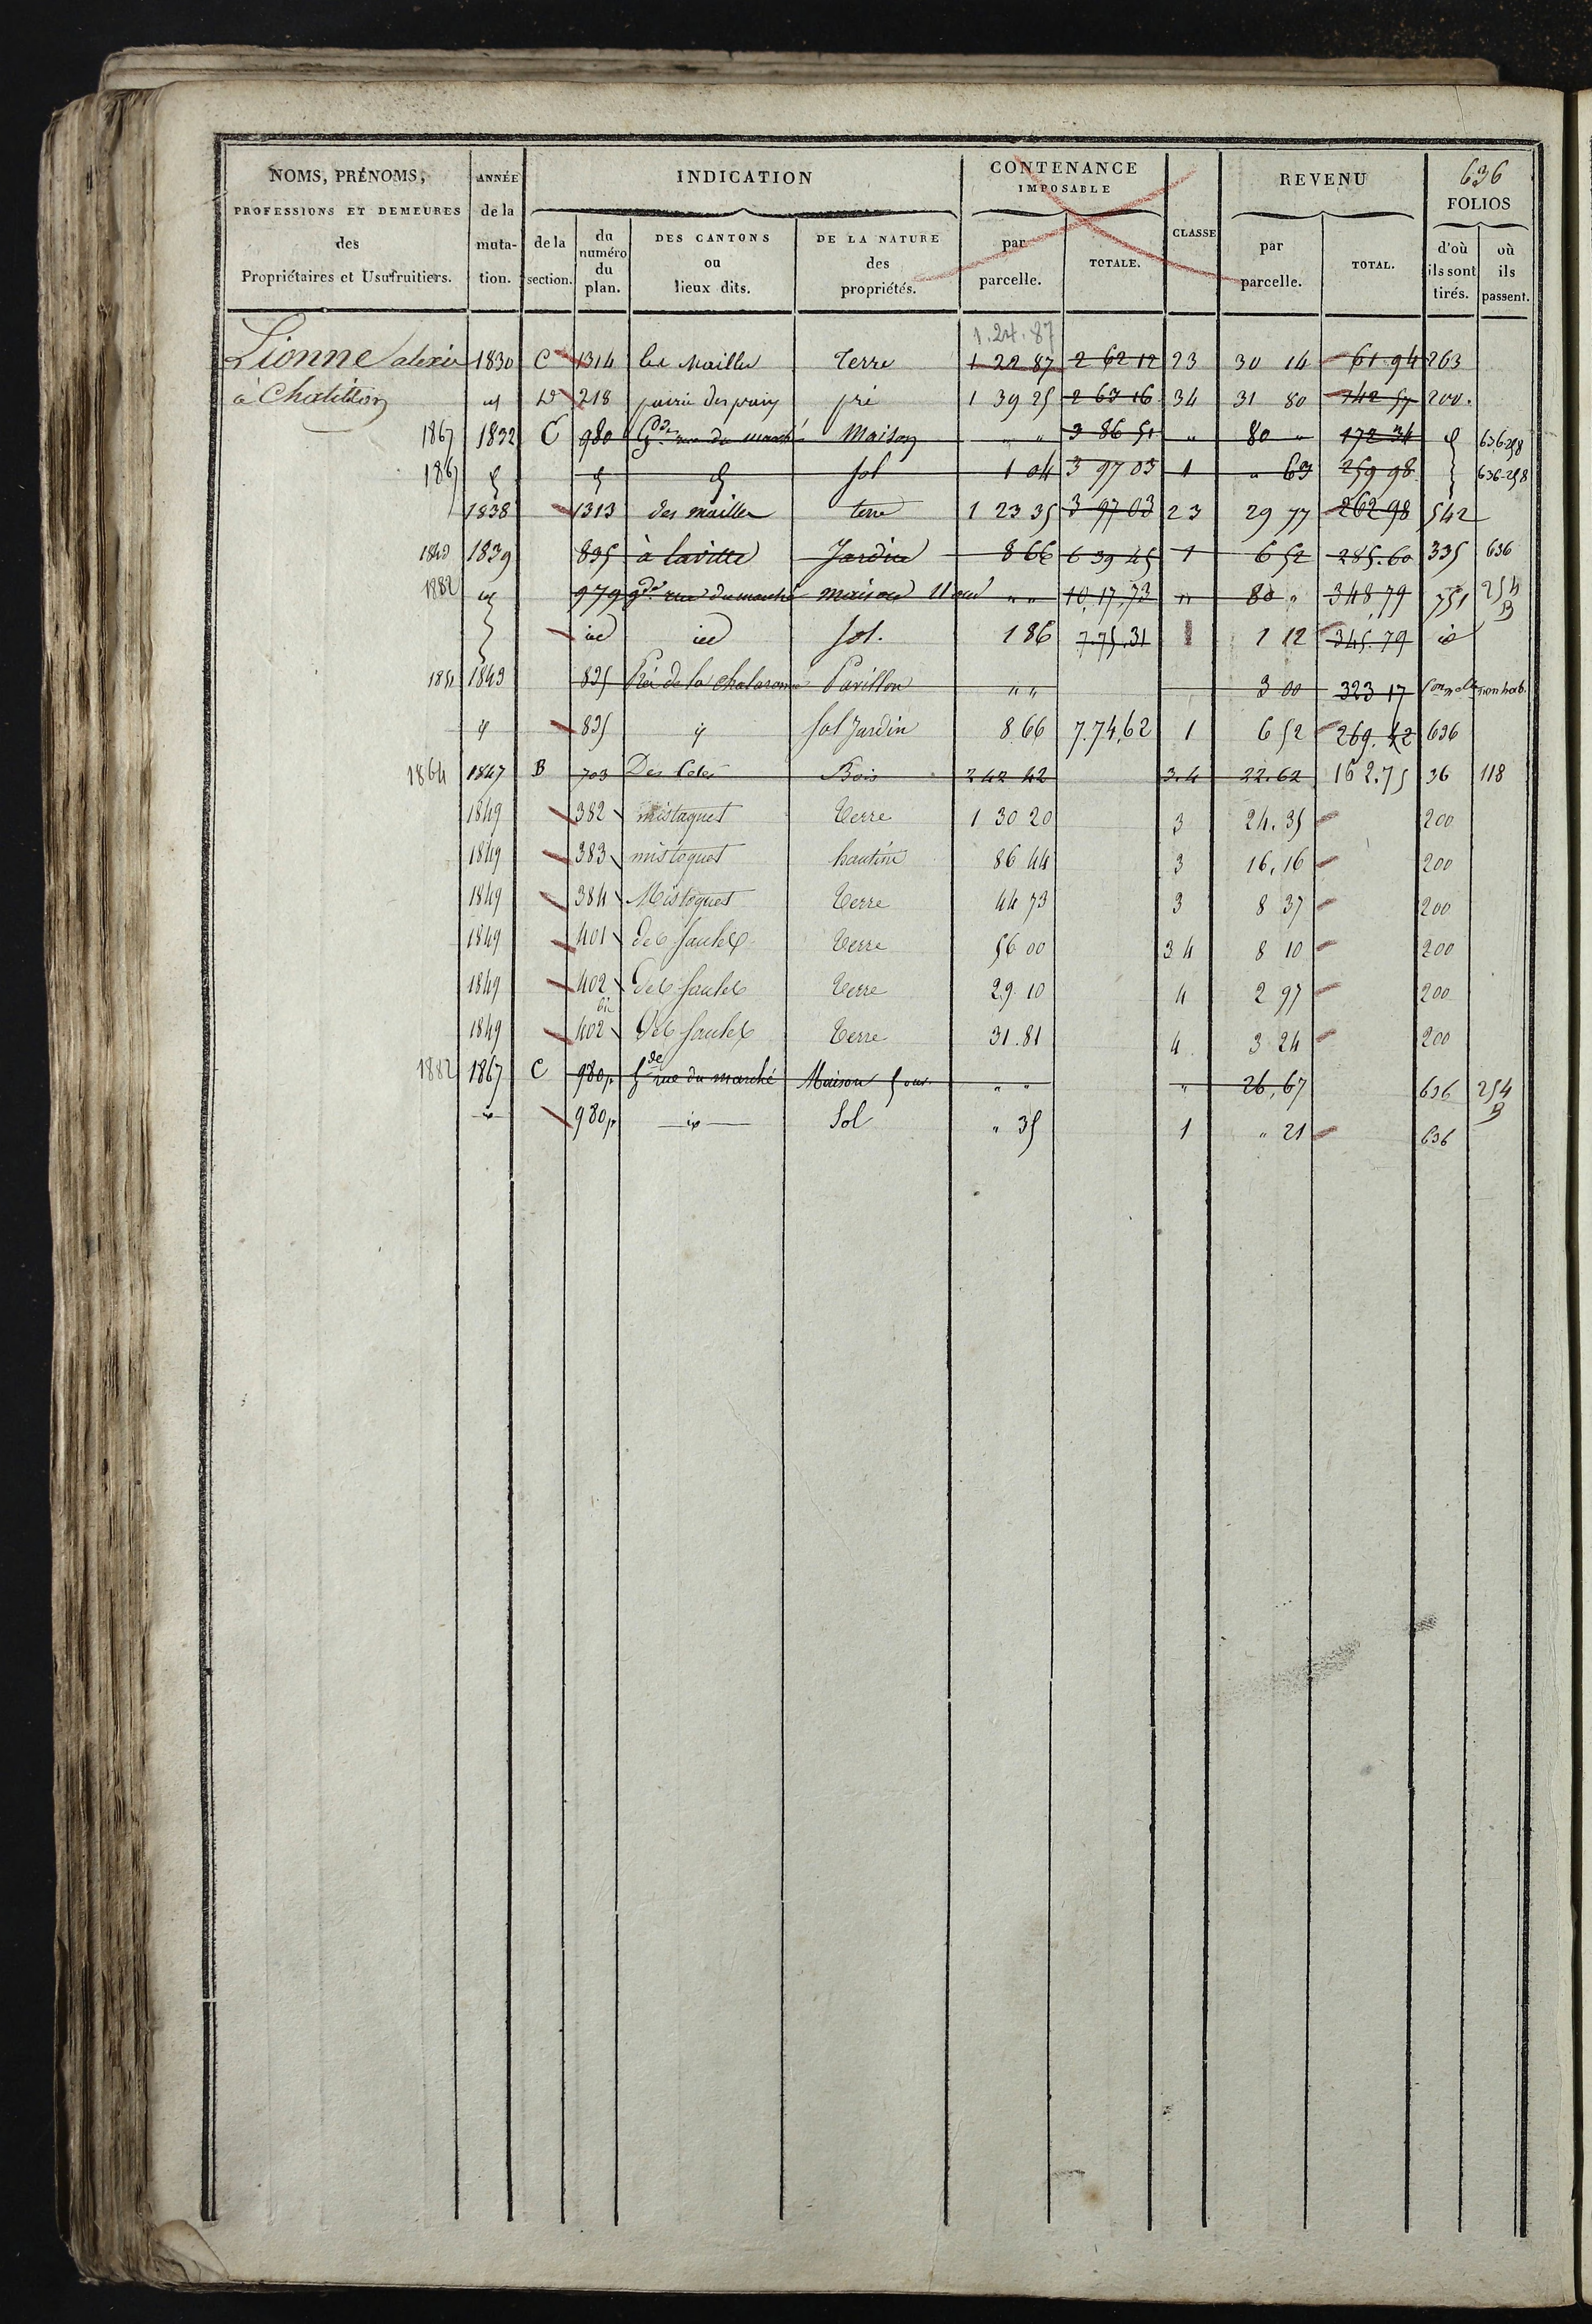 636
NOMS, PRÉNOMS, PROFESSIONS ET DEMEURES des Propriétaires et Usufruitiers.
ANNÉE de la muta- tion.
INDICATION
de la section.
du numéro du plan.
DES CANTONS ou lieux dits.
DE LA NATURE des propriétés.
CONTENANCE IMPOSABLE
par parcelle.
TOTALE.
CLASSE
REVENU
par parcelle.
TOTAL.
FOLIOS
d'où ils sont tirés.
où ils passent.
1.24.87
Lionne alexis 1830 C 1314 les Mailles Terre 1 22 87 2 62 12 23 30 14 61.94 263
à Chatillon id D 218 prairie des pré 1 39 25 2 63 16 34 31 80 142 57 200.
1867 1832 C 980 Gde rue du marché Maison " " 3 86 51 " 80 " 172 34 id 636-258
1867 id id id sol 1 04 3 97 03 1 " 63 259 98 636-258
1838 1313 des mailles terre 1 23 35 3 97 03 23 29 77 262 98 542
1843 1839 835 à laville Jardin 8 66 6 39 45 1 6 52 285.60 335 636
1882 id 979 gde rue du marché maison 11 ouv " " 10,17,73 " 80 " 348,79 751 254 B
id id sol. 1 86 7.75.31 1 1 12 345.79 id
1851 1843 835 Pré de la chalaronne Pavillon " " 3 00 323 17
id 835 id sol Jardin 8.66 7.74,62 1 6 52 269.42 636
1864 1847 B 703 Des Bois 2 42 42 3.4 22.62 162.75 36 118
1849 382 mistaquet Terre 1 30 20 3 24.35 200
1849 383 mistoquet hautins 86 44 3 16,16 200
1849 384 Mistoquet Terre 44 73 3 8 37 200
1849 401 des saules Terre 56 00 3 4 8 10 200
1849 402 des saules Terre 29 10 4 2 97 200
1849 402 bis des saules Terre 31.81 4. 3 24 200
1882 1867 C 980p Gde rue du marché Maison 5 ouv " " " 26,67 636 254 B
id 980p id Sol " 35 1 " 21 636